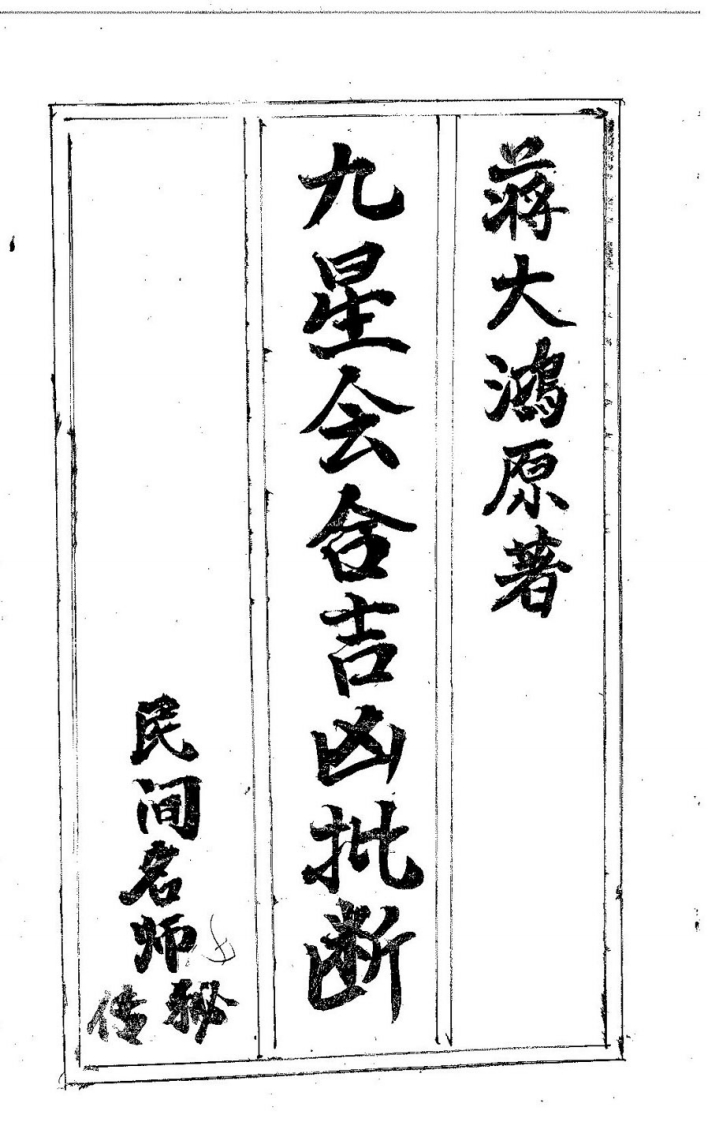 蒋大鴻原著
九星会合吉凶批断
民间名师秘传